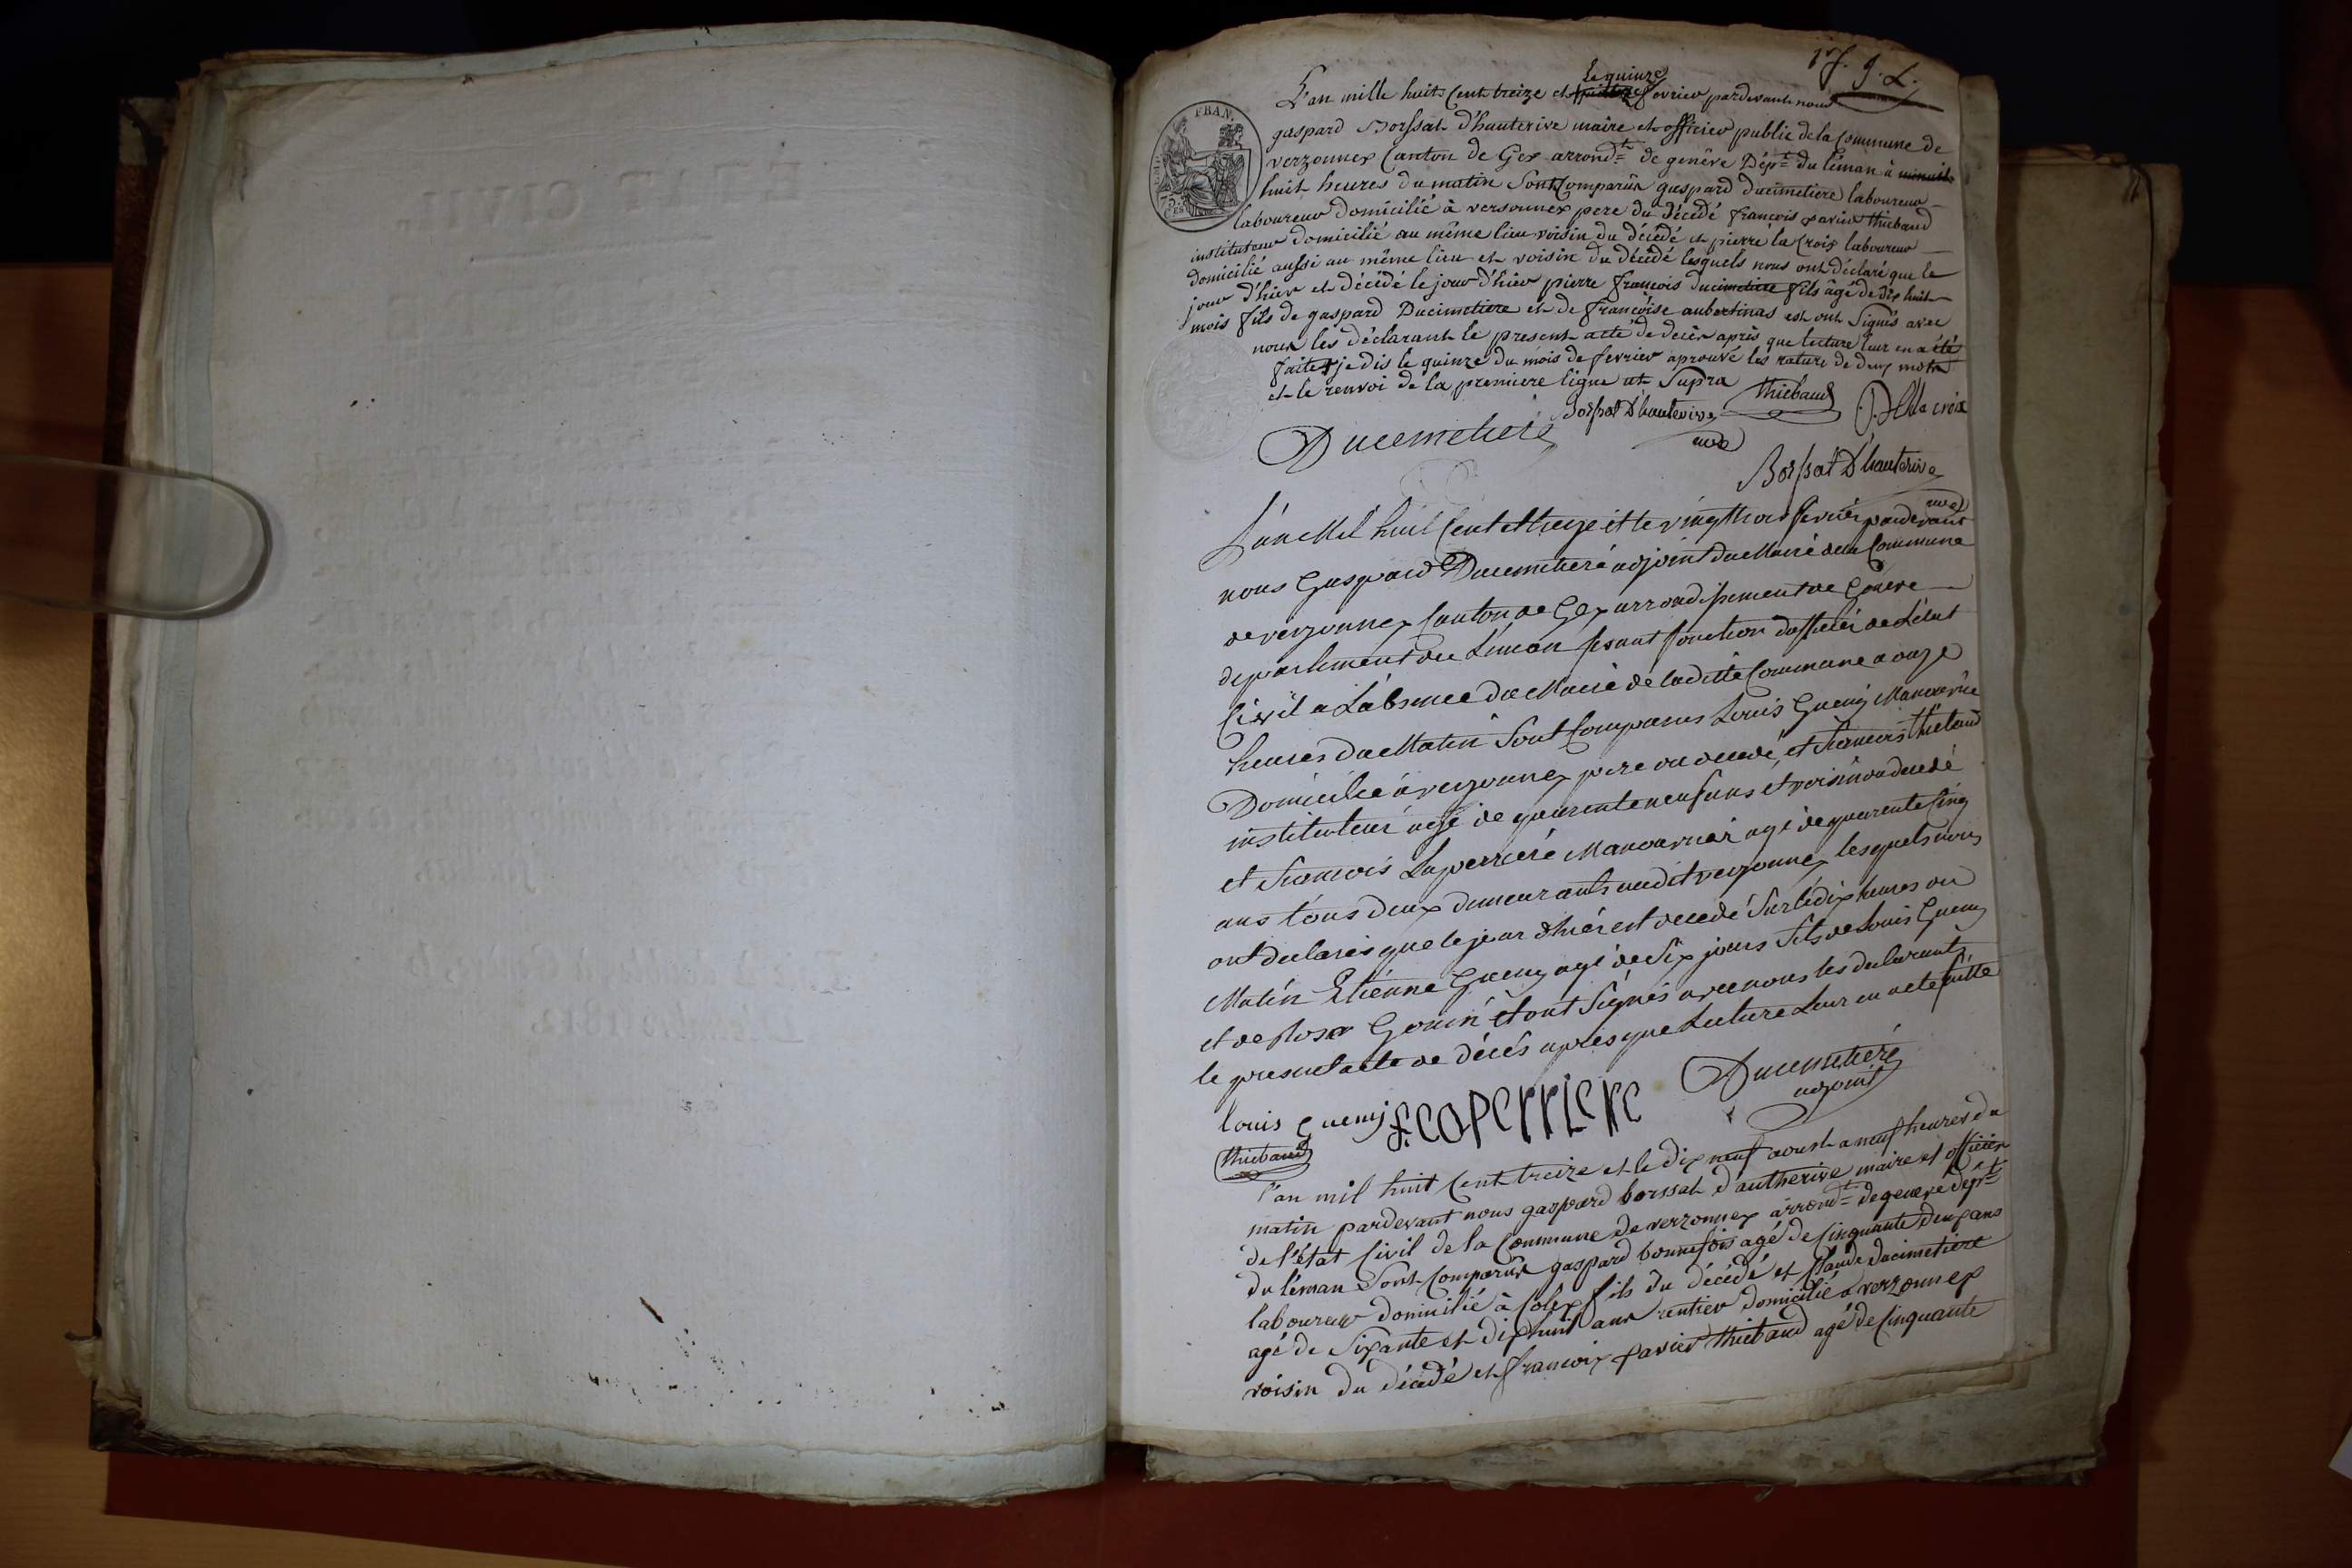 1r f. g. L.
le quinze
L'an mille huit cent treize et fevrier pardevant nous
gaspard Borssat d'hauterive maire et officier public de la Commune de
verzonnex Canton de Gex arrondt de genêve Dépt du léman à minuit
huit heures du matin Sont Comparûs gaspard ducimetiere laboureur
laboureur domicilié à versonnex pere du décédé francois xavier thiebaud
instituteur domicilié au même lieu voisin du décédé et pierre la Croix laboureur
domicilié aussi au même lieu et voisin du décédé lesquels nous ont déclaré que le
jour d'hier et décédé le jour d'hier pierre francois ducimetiere fils âgé de dix huit
mois fils de gaspard Ducimetiere et de francoise aubertinas est ont Signés avec
nous les déclarant le present acte de decès après que lecture leur en a été
faite je dis le quinze du mois de fevrier aprouvé les rature de deux mots
et le renvoi de la premiere ligne ut Supra
thiebaud
P. DeLa croix
Borssat D'hauterive
Ducemetiere
mre
Borssat D'hauterive
mre
L'an Mil huit Cent et treize et le vingt trois fevrier pardevant
nous Gaspard Ducemetiere adjoint du Maire de la Commune
de verzonnex Canton de Gex arrondissement de Genève
departement du Léman fesant fonction d'officier de L'état
Civil a L'absence du Maire de laditte Commune a onze
heures du Matin Sont Comparus Louis Gueny Manoeuvrie
Domicilié à verzonnex pere du decedé, et francois thiebaud
instituteur agé de quarente neuf ans et voisin du decedé
et francois Laperriere Manouvrier agé de quarente Cinq
ans tous deux demeurants audit verzonnex lesquels nous
ont declarés que le jour d'hier est decedé Sur le dix heures du
Matin Etienne Gueny agé de Six jours fils de Louis Gueny
et de Rose Gonin et ont Signés avec nous les declarants
le present acte de décés apres que Lecture Leur en a eté faitte
Ducemetiere
adjoint
louis gueny
f. laperriere
thiebaud
l'an mil huit cent treize et le dix neuf aoust a neuf heures du
matin pardevant nous gaspard borssat d'autherive maire et officier
de l'état Civil de la Commune de verzonnex arrondt de geneve dépt
du léman Sont Comparûs gaspard bonnefois agé de Cinquante deux ans
laboureur domicilié à Colex fils du décédé et Claude ducimetiere
agé de Sixante et dix huit ans rentier domicilié a verzonnex
voisin du décédé et francoix xavier thiebaud agé de Cinquante